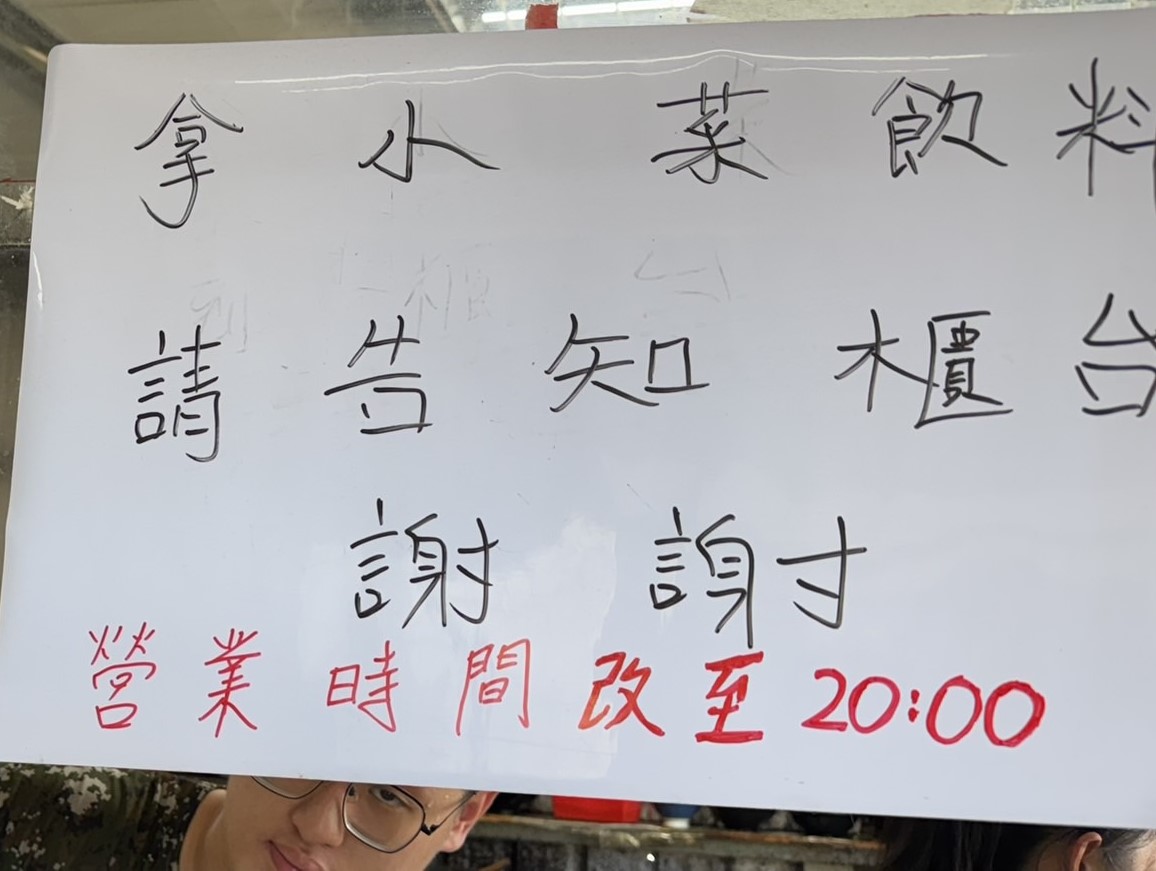 拿水菜飲料
請告知櫃台
謝謝
營業時間改至20:00